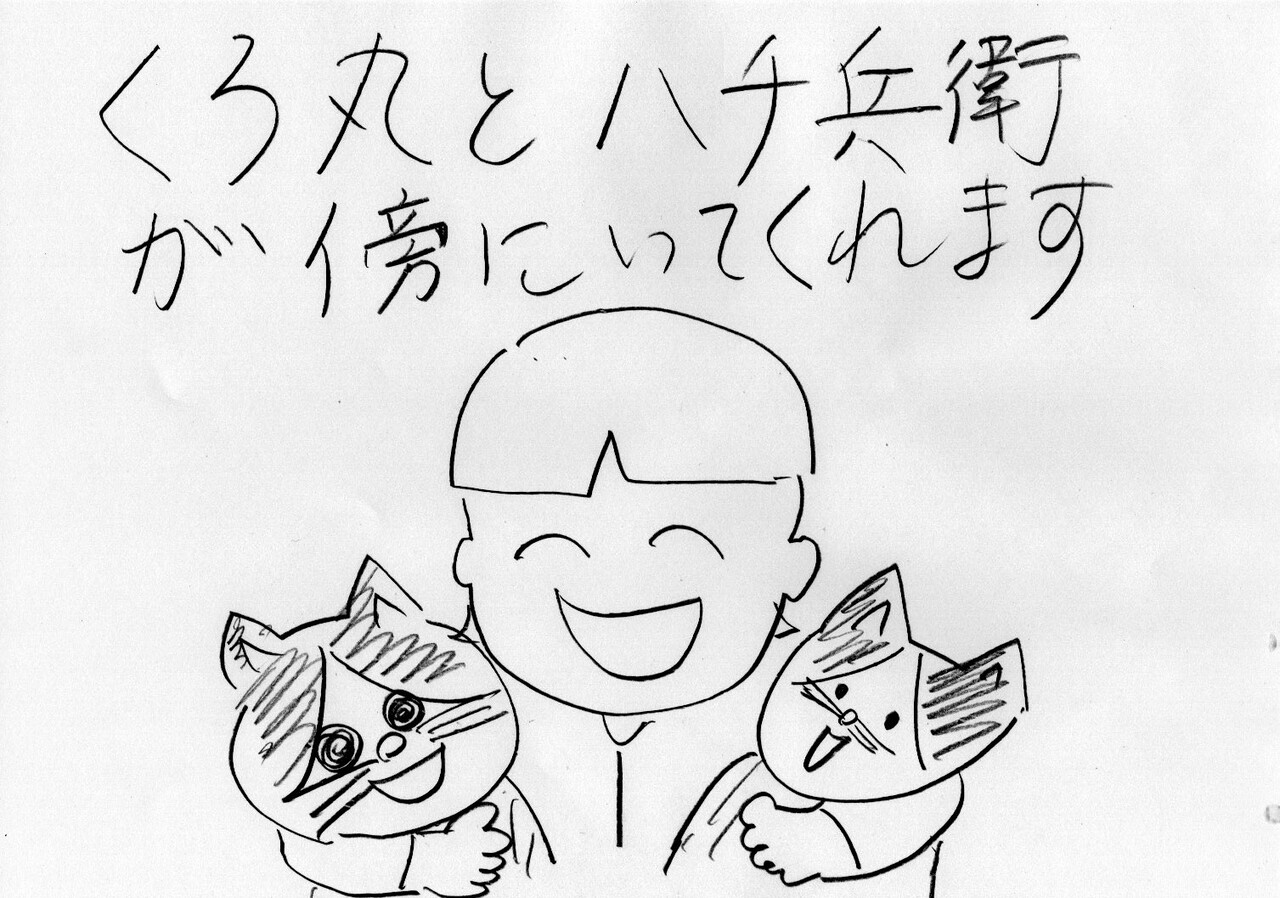 くろ丸とハチ兵衛
が傍にいてくれます